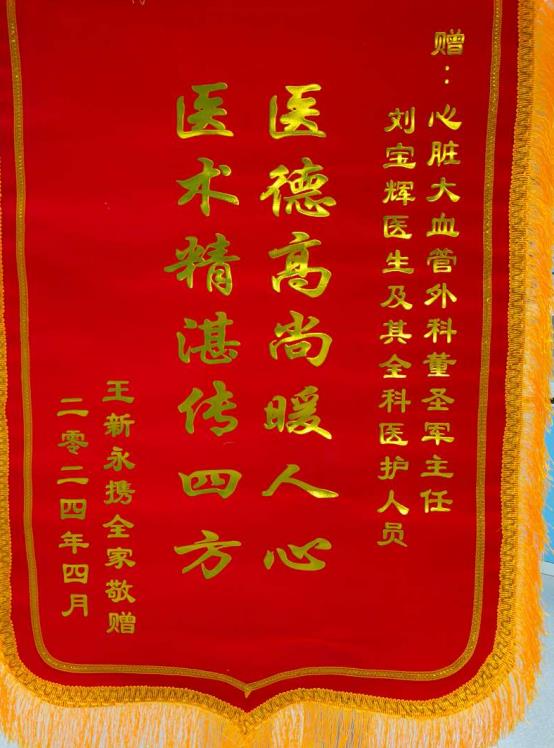 赠：心脏大血管外科董圣军主任
刘宝辉医生及其全科医护人员
医德高尚暖人心
医术精湛传四方
王新永携全家敬赠
二零二四年四月